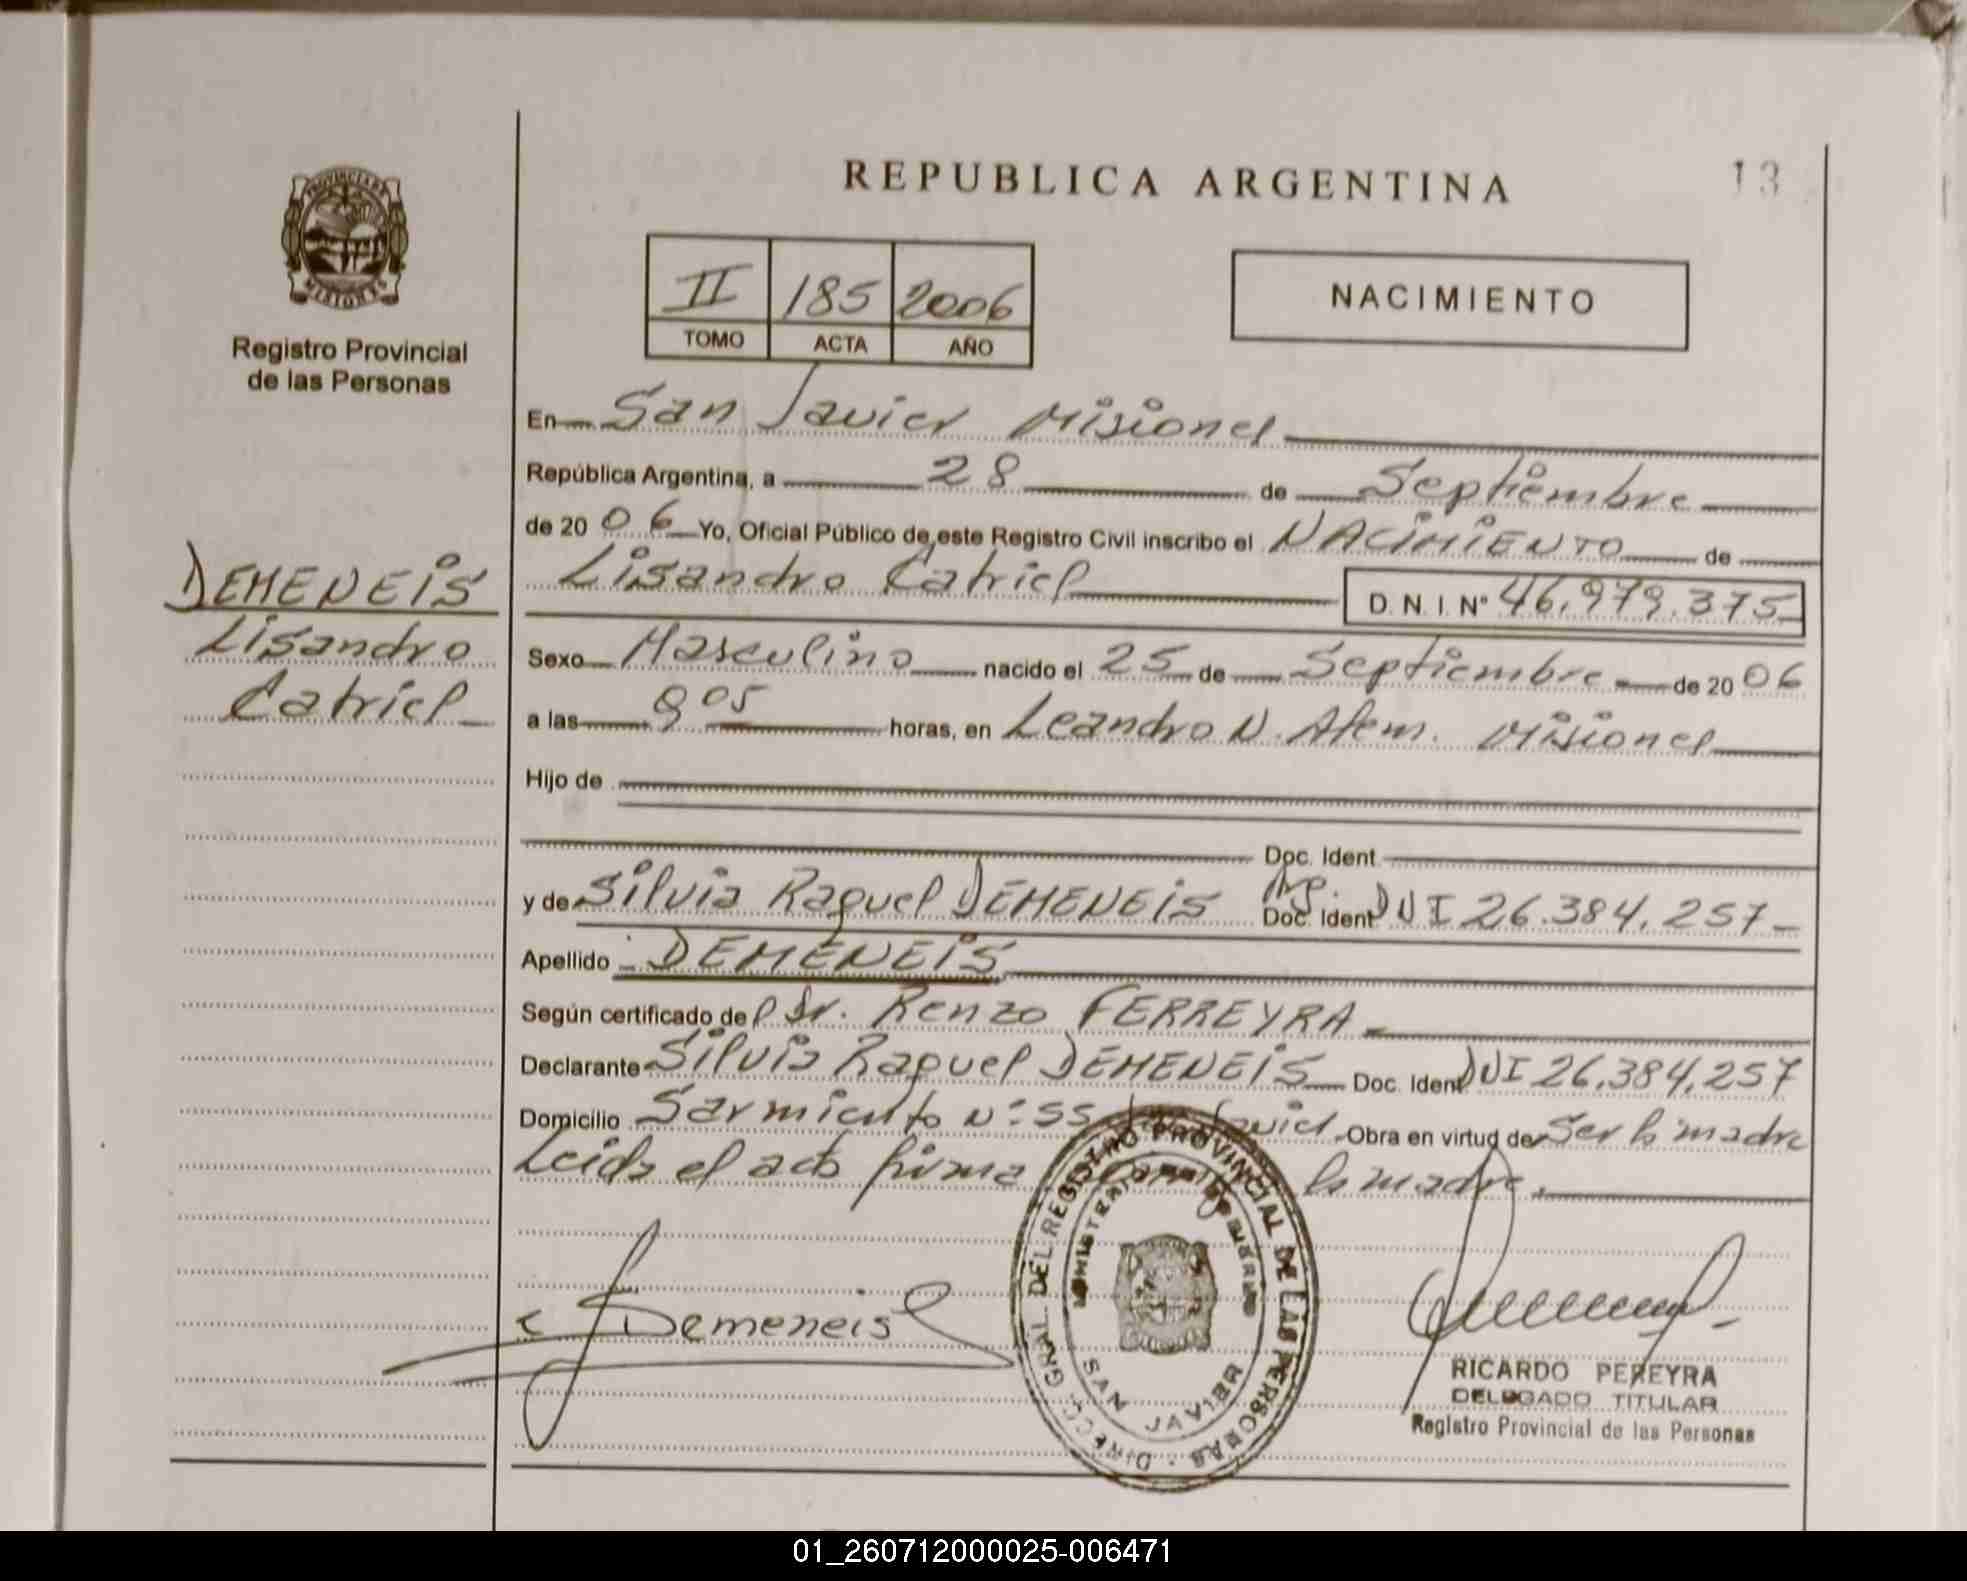 REPUBLICA ARGENTINA
13
PROVINCIA DE
MISIONES
Registro Provincial
de las Personas
II 185 2006
TOMO ACTA AÑO
NACIMIENTO
En San Javier Misiones
República Argentina, a 28 de Septiembre
de 20 06 Yo, Oficial Público de este Registro Civil inscribo el NACIMIENTO de
Lisandro Catriel D.N.I. Nº 46.979.375
DEMENEIS
Lisandro
Catriel
Sexo Masculino nacido el 25 de Septiembre de 20 06
a las 9 05 horas, en Leandro N. Alem. Misiones
Hijo de
Doc. Ident.
y de Silvia Raquel DEMENEIS Arg. Doc. Ident DNI 26.384.257
Apellido DEMENEIS
Según certificado del Dr. Renzo FERREYRA
Declarante Silvia Raquel DEMENEIS Doc. Ident DNI 26.384.257
Domicilio Sarmiento Nº 55 San Javier Obra en virtud de Ser la madre
Leida el acta firma la madre.
Demeneis
DIRECC. GRAL. DEL REGISTRO PROVINCIAL DE LAS PERSONAS
MINISTERIO DE GOBIERNO
SAN JAVIER
RICARDO PEREYRA
DELEGADO TITULAR
Registro Provincial de las Personas
01_260712000025-006471